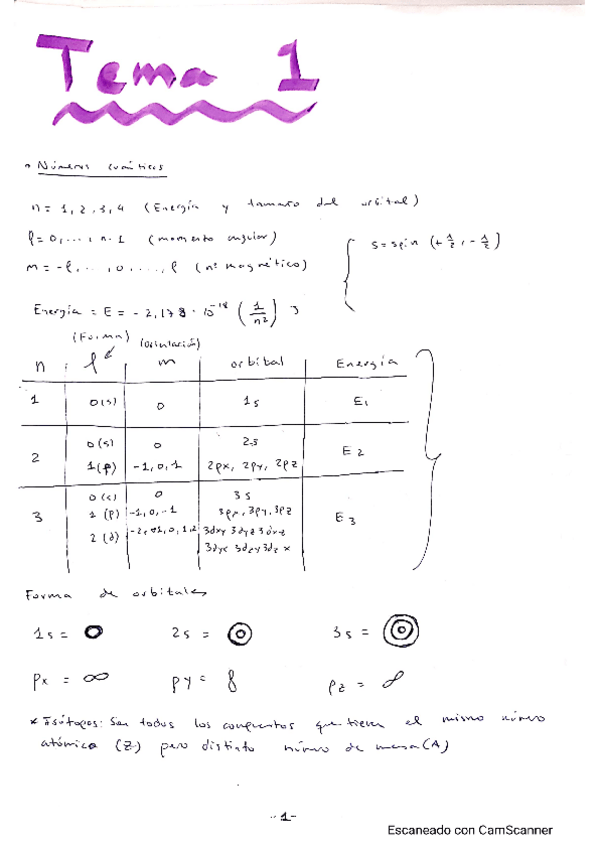 Tema 1
• Números cuánticos
n = 1, 2, 3, 4 (Energía y tamaño del orbital)
l = 0, ..., n-1 (momento angular)
s = spin (+1/2, -1/2)
m = -l, ..., 0, ..., l (nº magnético)
Energía = E = -2,178 · 10^-18 (1/n²) J
(Forma) (orientación)
n l m orbital Energía
1 0(s) 0 1s E1
2 0(s) 0 2s E2
1(p) -1, 0, 1 2px, 2py, 2pz
3 0(s) 0 3s E3
1(p) -1, 0, -1 3px, 3py, 3pz
2(d) -2, -1, 0, 1, 2 3dxy 3dyz 3dxz
Forma de orbitales
1s = 2s = 3s =
px = py = pz =
* Isótopos: Son todos los compuestos que tienen el mismo número
atómico (Z) pero distinto número de masa (A)
-1-
Escaneado con CamScanner